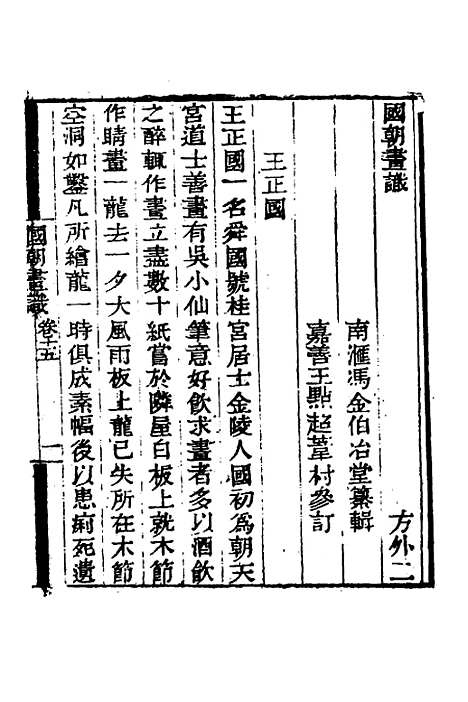 國朝畫識
方外二
南滙馮金伯冶堂纂輯
嘉善王點超葦村參訂
王正國
王正國一名舜國號桂宮居士金陵人國初為朝天
宮道士善畫有吳小仙筆意好飲求畫者多以酒飲
之醉輒作畫立盡數十紙嘗於隣屋白板上就木節
作睛畫一龍去一夕大風雨板上龍已失所在木節
空洞如鑿凡所繪龍一時俱成素幅後以患痢死遺
國朝畫識
卷十五
一